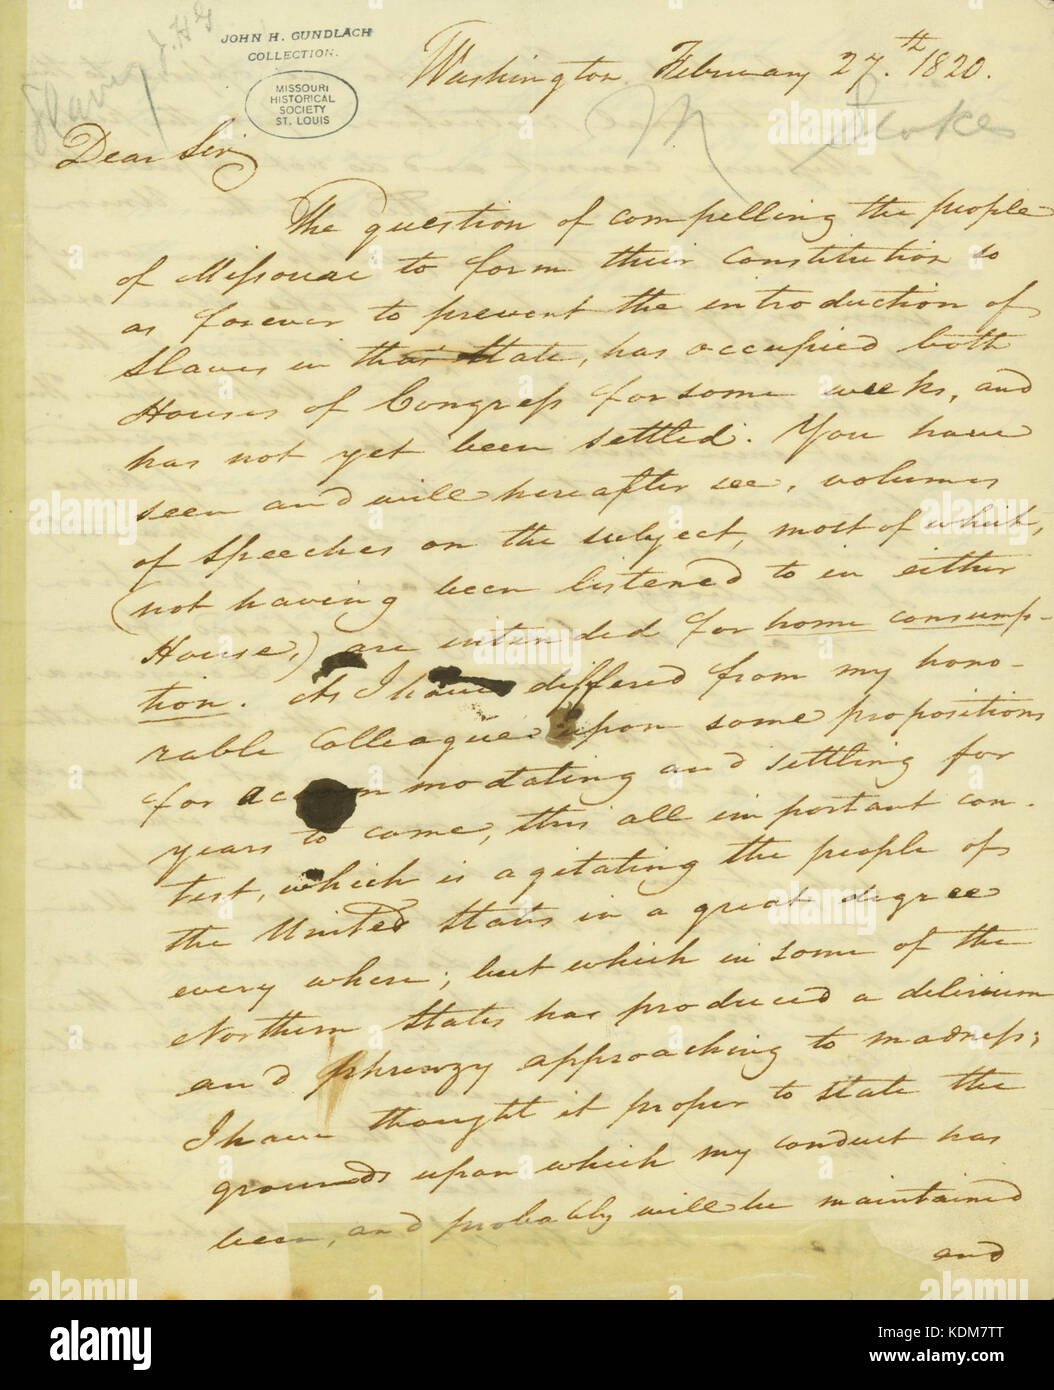 Slavery J.H.G
JOHN H. GUNDLACH
COLLECTION.
MISSOURI
HISTORICAL
SOCIETY
ST. LOUIS
Washington February 27.th 1820.
M. Stokes
Dear Sir,
The question of compelling the people
of Missouri to form their Constitution so
as forever to prevent the introduction of
Slaves in that State, has occupied both
Houses of Congress for some weeks, and
has not yet been settled. You have
seen and will hereafter see, volumes
of Speeches on the subject, most of which,
(not having been listened to in either
House,) are intended for home consump-
tion. As I have differed from my hono-
rable Colleague upon some propositions
for accommodating and settling for
years to come, this all important con-
test, which is agitating the people of
the United States in a great degree
every where; but which in some of the
Northern States has produced a delirium
and phrenzy approaching to madness;
I have thought it proper to state the
grounds upon which my conduct has
been, and probably will be maintained
and
alamy
alamy stock photo
KDM7TT
www.alamy.com